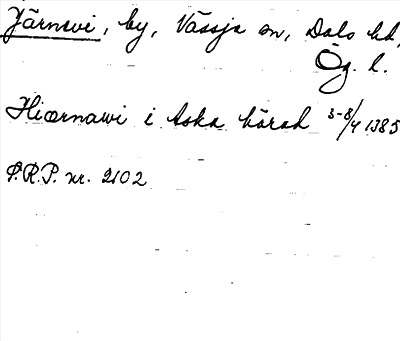 Järnevi, by, Vässja sn, Dals hd,
Ög. l.
Hiærnawi i Aska härad 3-8/4 1385
S.R.P. nr. 2102